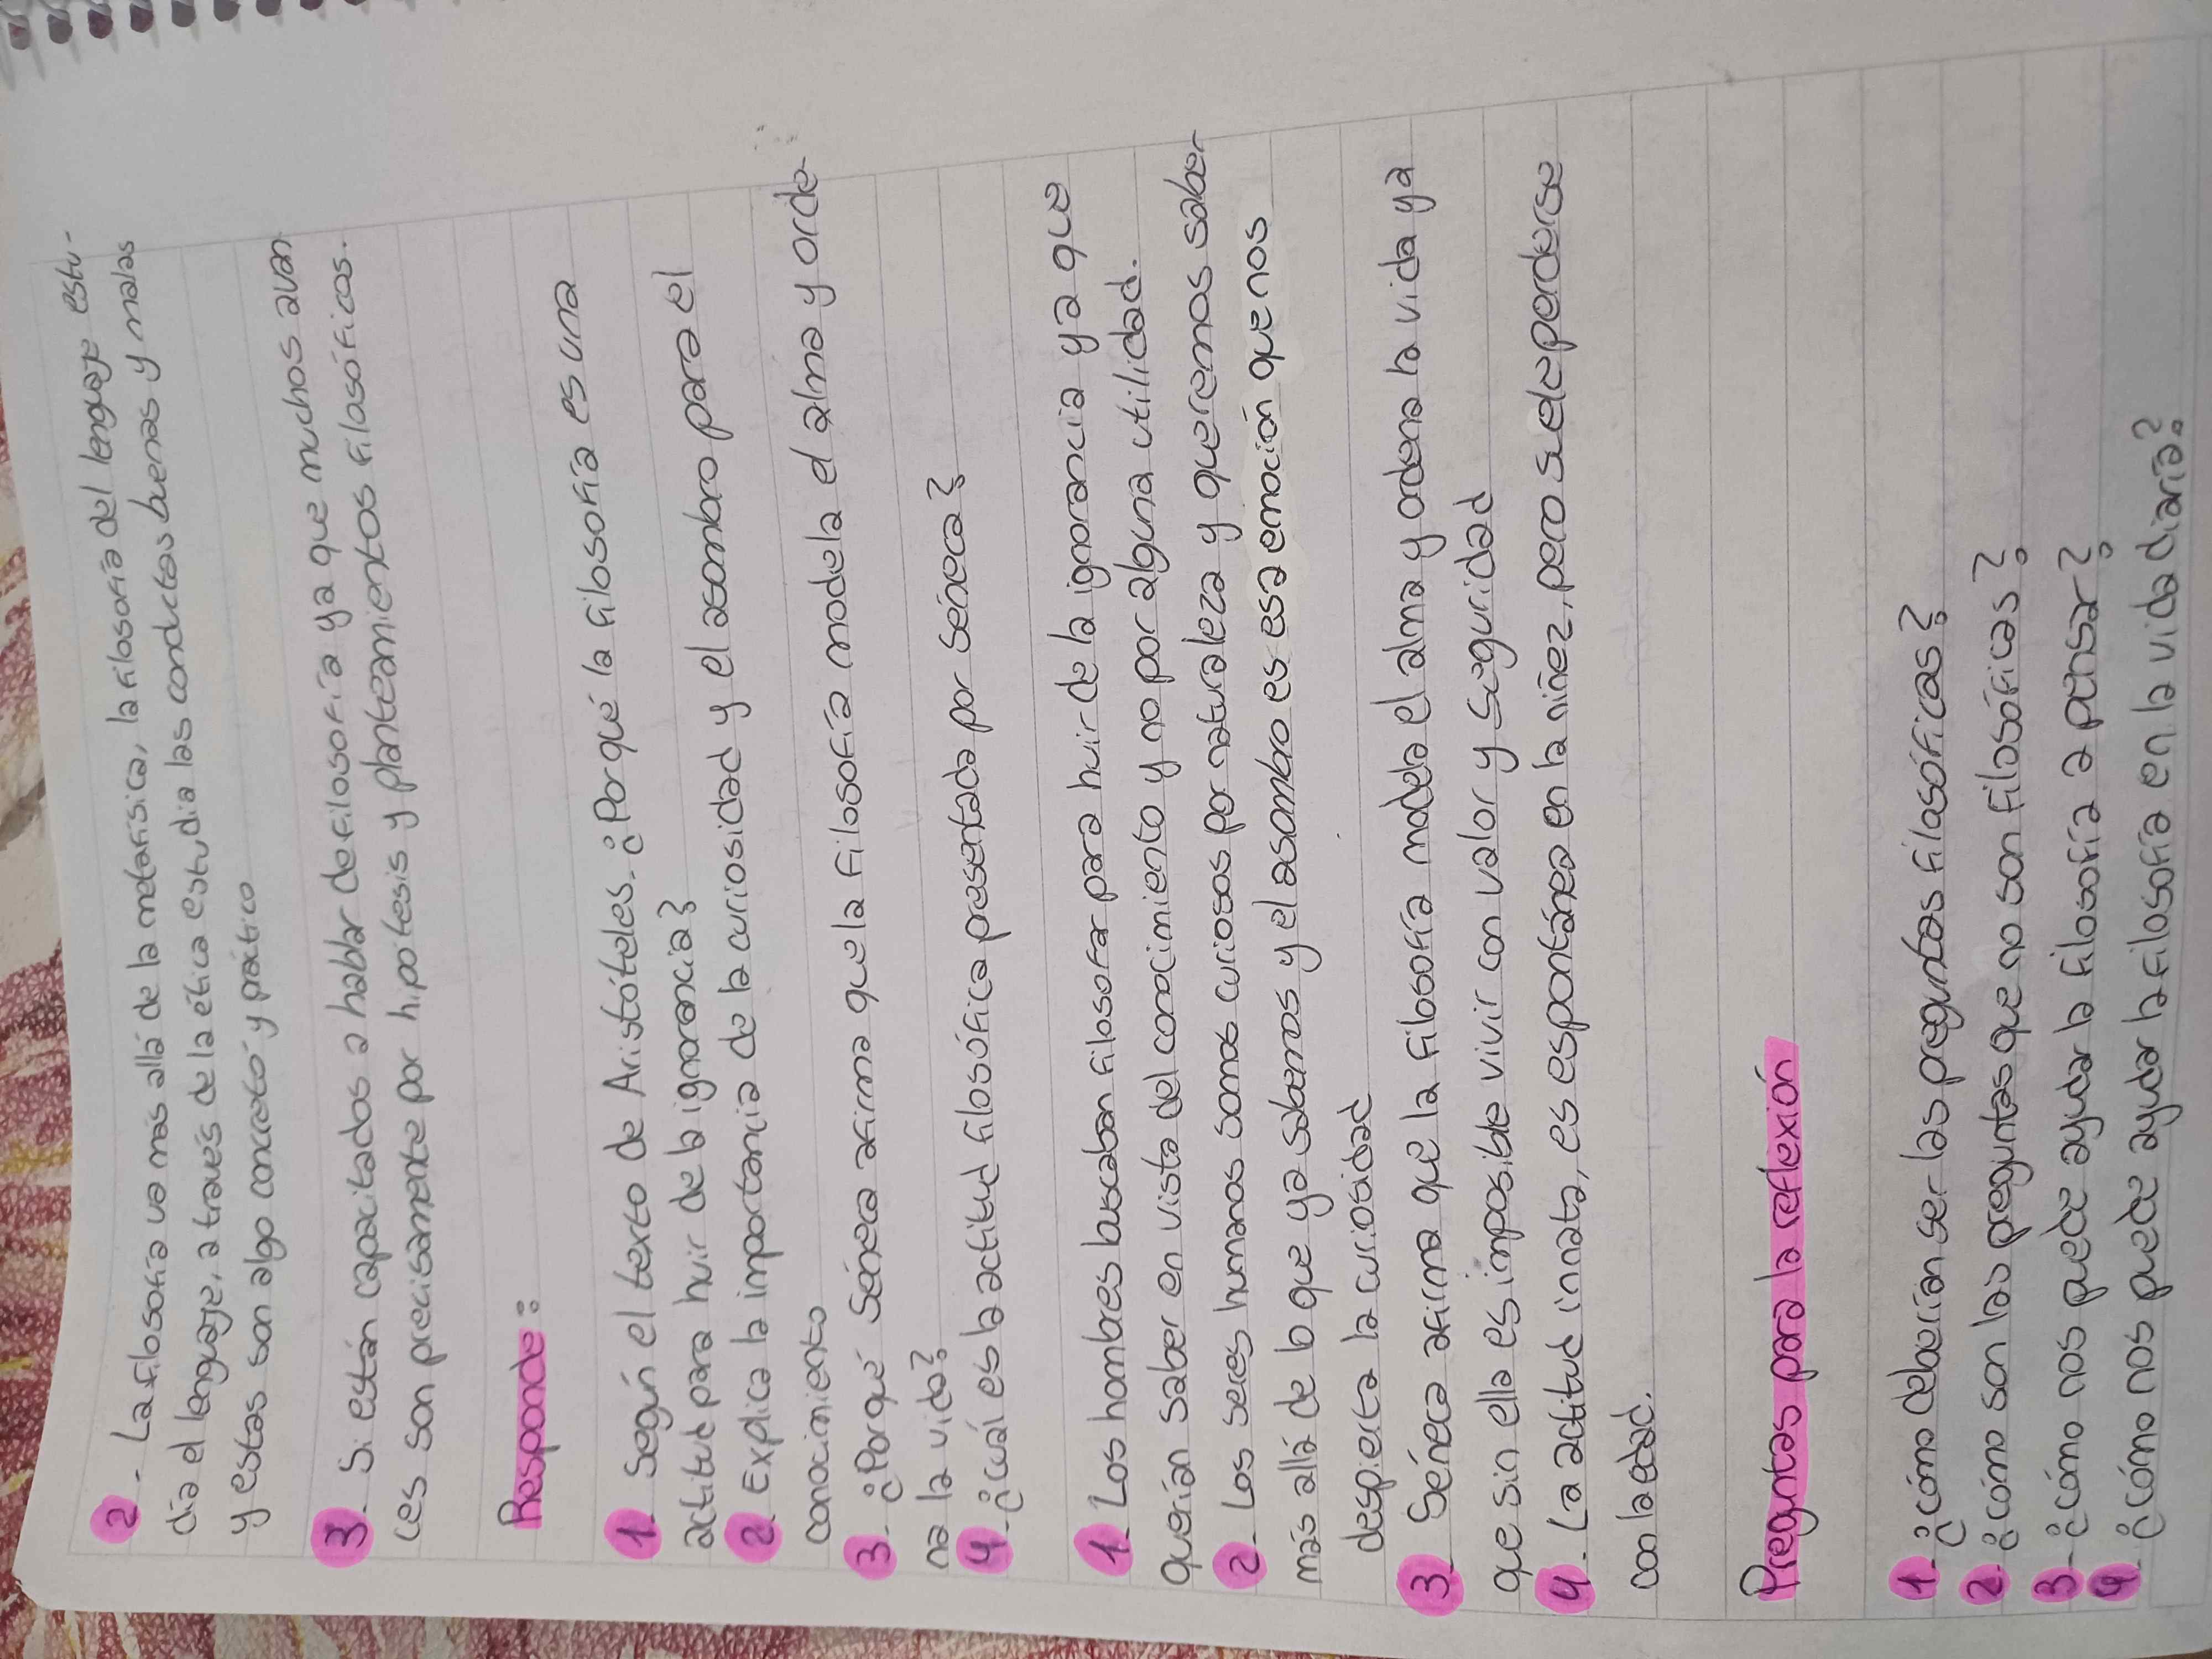 2.- La filosofía va más allá de la metafísica, la filosofía del lenguaje estu-
dia el lenguaje, a través de la ética estudia las conductas buenas y malas
y estas son algo concreto y práctico
3.- Si están capacitados a hablar de filosofía ya que muchos avan
ces son precisamente por hipótesis y planteamientos filosóficos.
Responde:
1.- Según el texto de Aristóteles. ¿Porqué la filosofía es una
actitud para huir de la ignorancia?
2. Explica la importancia de la curiosidad y el asombro para el
conocimiento
3.- ¿Porqué Séneca afirma que la filosofía modela el alma y orde-
na la vida?
4.- ¿Cuál es la actitud filosófica presentada por Séneca?
1.- Los hombres buscaban filosofar para huir de la ignorancia ya que
querían saber en vista del conocimiento y no por alguna utilidad.
2.- Los seres humanos somos curiosos por naturaleza y queremos saber
más allá de lo que ya sabemos y el asombro es esa emoción que nos
despierta la curiosidad
3.- Séneca afirma que la filosofía modela el alma y ordena la vida ya
que sin ella es imposible vivir con valor y seguridad
4.- La actitud innata, es espontánea en la niñez, pero suele perderse
con la edad.
Preguntas para la reflexión
1.- ¿Cómo deberían ser las preguntas filosóficas?
2.- ¿Cómo son las preguntas que no son filosóficas?
3.- ¿Cómo nos puede ayudar la filosofía a pensar?
4.- ¿Cómo nos puede ayudar la filosofía en la vida diaria?